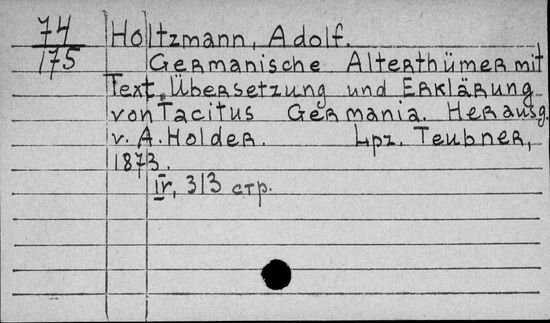 74 Holtzmann, Adolf.
175 Germanische Alterthümer mit
Text, Übersetzung und Erklärung
von Tacitus Germania. Herausg.
v. A. Holder. Lpz. Teubner,
1873.
IV, 313 стр.